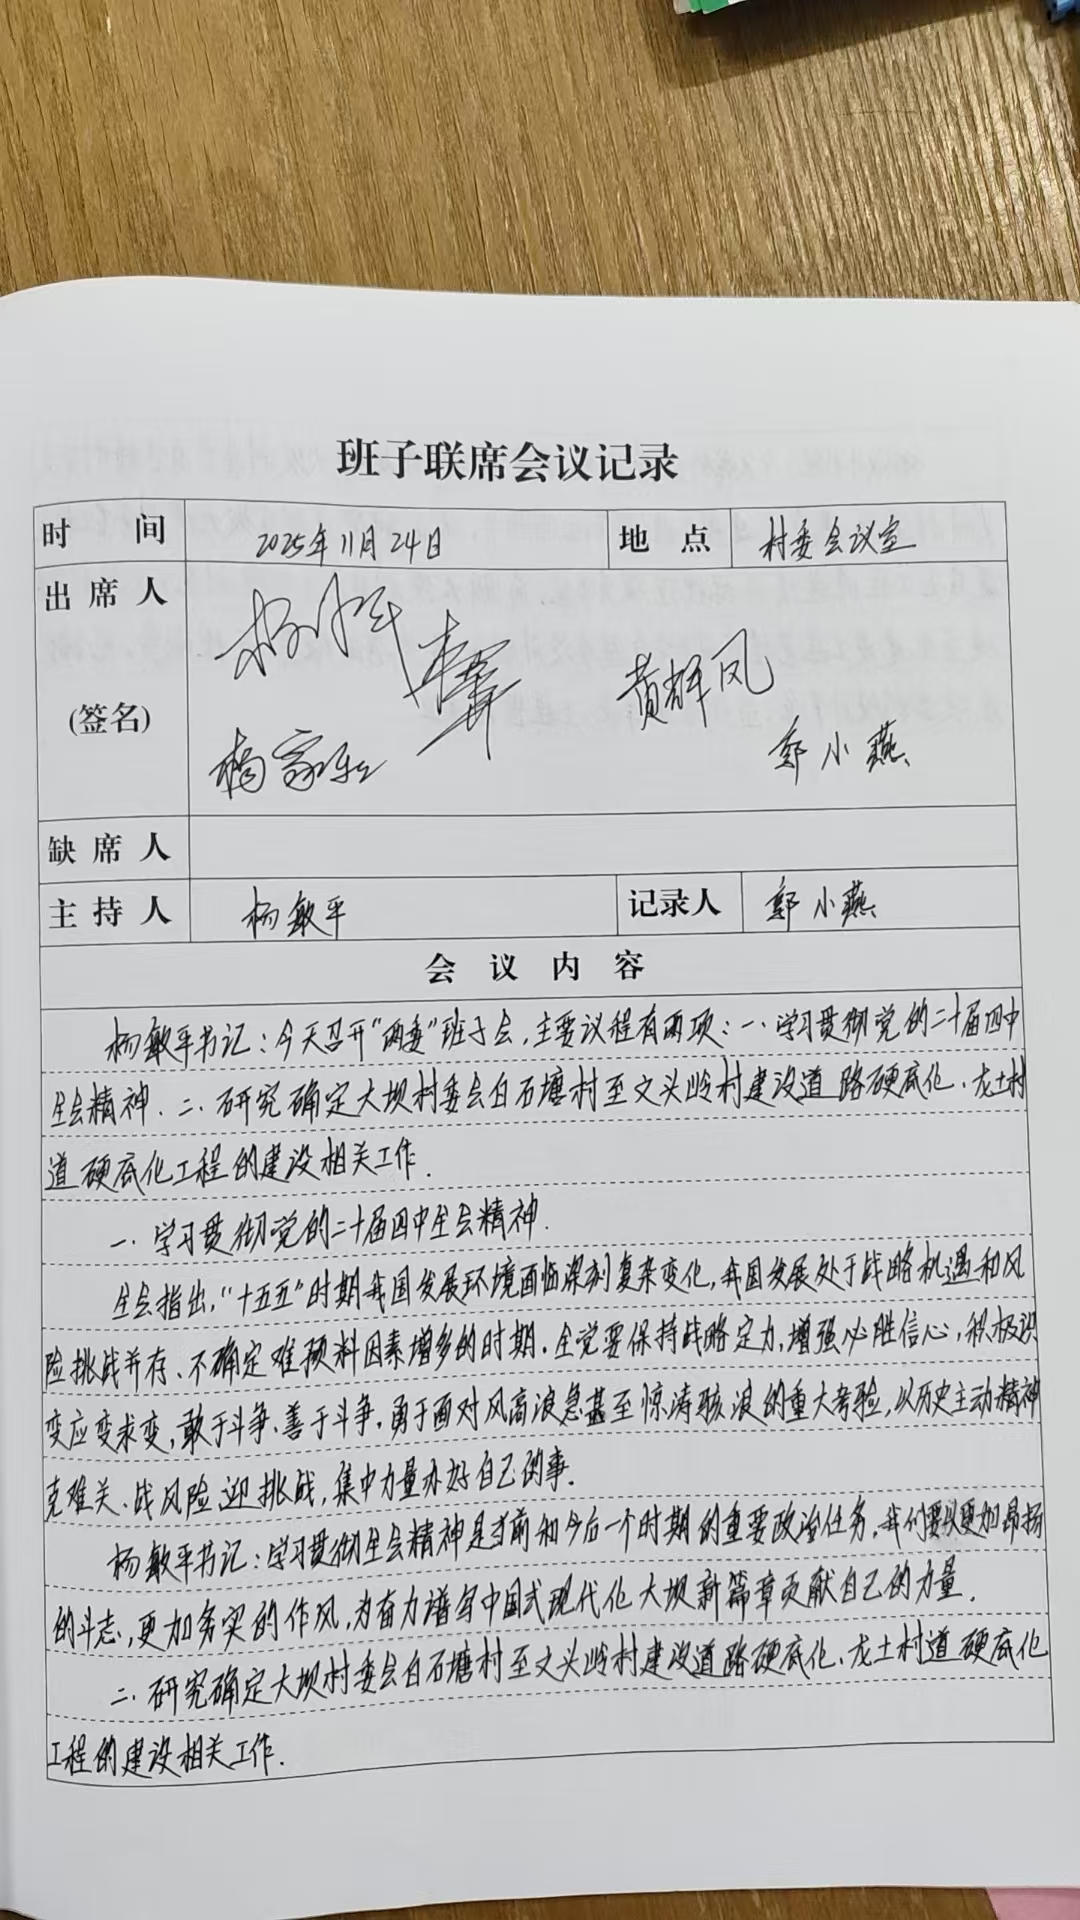 班子联席会议记录
时 间 2025年11月24日 地 点 村委会议室
出席人
(签名)
黄群凤
杨家 郭小燕
缺席人
主持人 杨敏平 记录人 郭小燕
会议内容
杨敏平书记:今天召开"两委"班子会,主要议程有两项:一、学习贯彻党的二十届四中
全会精神.二、研究确定大坝村委会白石塘村至文头岭村建设道路硬底化、龙土村
道硬底化工程的建设相关工作.
一、学习贯彻党的二十届四中全会精神.
全会指出,"十五五"时期我国发展环境面临深刻复杂变化,我国发展处于战略机遇和风
险挑战并存、不确定难预料因素增多的时期.全党要保持战略定力,增强必胜信心,积极识
变应变求变,敢于斗争、善于斗争,勇于面对风高浪急甚至惊涛骇浪的重大考验,以历史主动精神
克难关、战风险迎挑战,集中力量办好自己的事.
杨敏平书记:学习贯彻全会精神是当前和今后一个时期的重要政治任务,我们要以更加昂扬
的斗志,更加务实的作风,为奋力谱写中国式现代化大坝新篇章贡献自己的力量.
二、研究确定大坝村委会白石塘村至文头岭村建设道路硬底化、龙土村道硬底化
工程的建设相关工作.